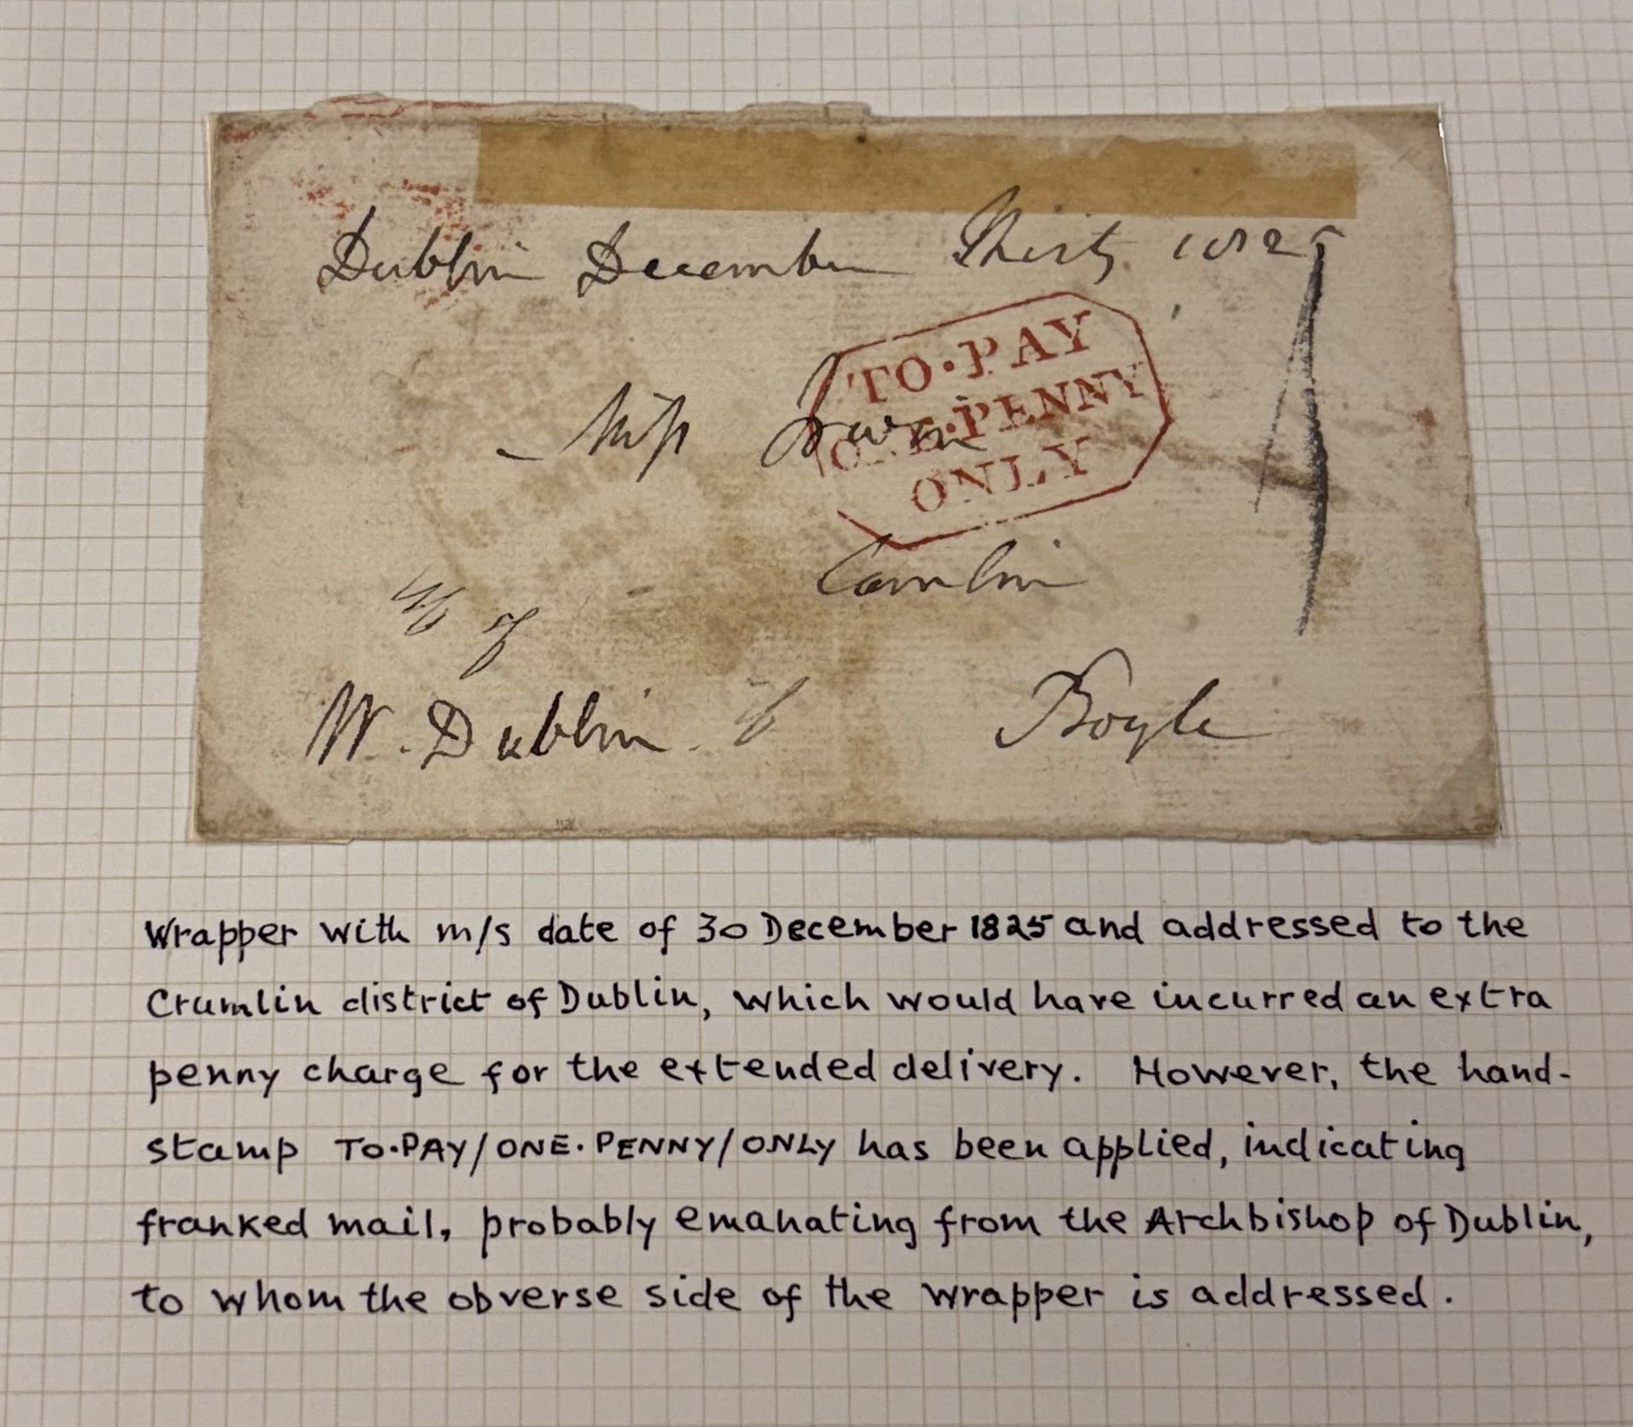 Dublin December Thirty 1825
TO·PAY
ONE·PENNY
ONLY
Miss Irwin
Camlin
W. Dublin
Boyle
Wrapper with m/s date of 30 December 1825 and addressed to the
Crumlin district of Dublin, which would have incurred an extra
penny charge for the extended delivery. However, the hand-
stamp TO·PAY/ONE·PENNY/ONLY has been applied, indicating
franked mail, probably emanating from the Archbishop of Dublin,
to whom the obverse side of the wrapper is addressed.